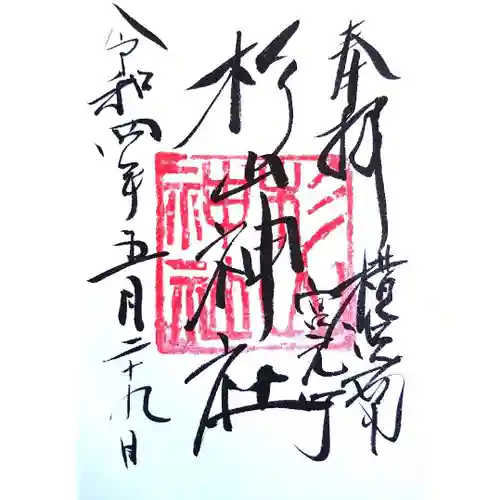 奉拝
横浜南
宮元町
杉山神社
杉山神社
令和四年五月二十九日